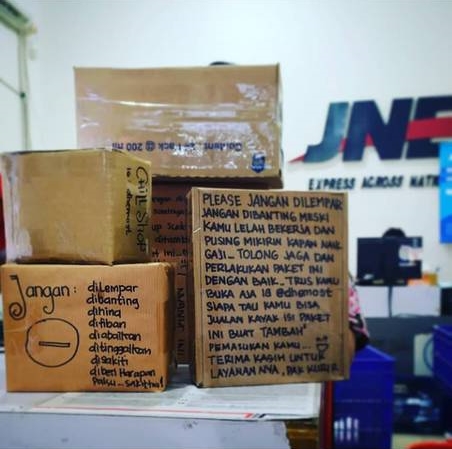 JNE
EXPRESS ACROSS NATI
200 ml
CHILSHOP
ig: dhemost
Jangan:
dilempar
dibanting
dihina
ditiban
diabaikan
ditinggalkan
disakiti
diberi Harapan
Palsu... sakit tau!
PLEASE JANGAN DILEMPAR
JANGAN DIBANTING MESKI
KAMU LELAH BEKERJA DAN
PUSING MIKIRIN KAPAN NAIK
GAJI... TOLONG JAGA DAN
PERLAKUKAN PAKET INI
DENGAN BAIK.. TRUS KAMU
BUKA AJA IG @dhemost
SIAPA TAU KAMU BISA
JUALAN KAYAK ISI PAKET
INI BUAT TAMBAH"
PEMASUKAN KAMU...
TERIMA KASIH UNTUK
LAYANAN NYA, PAK KURIR